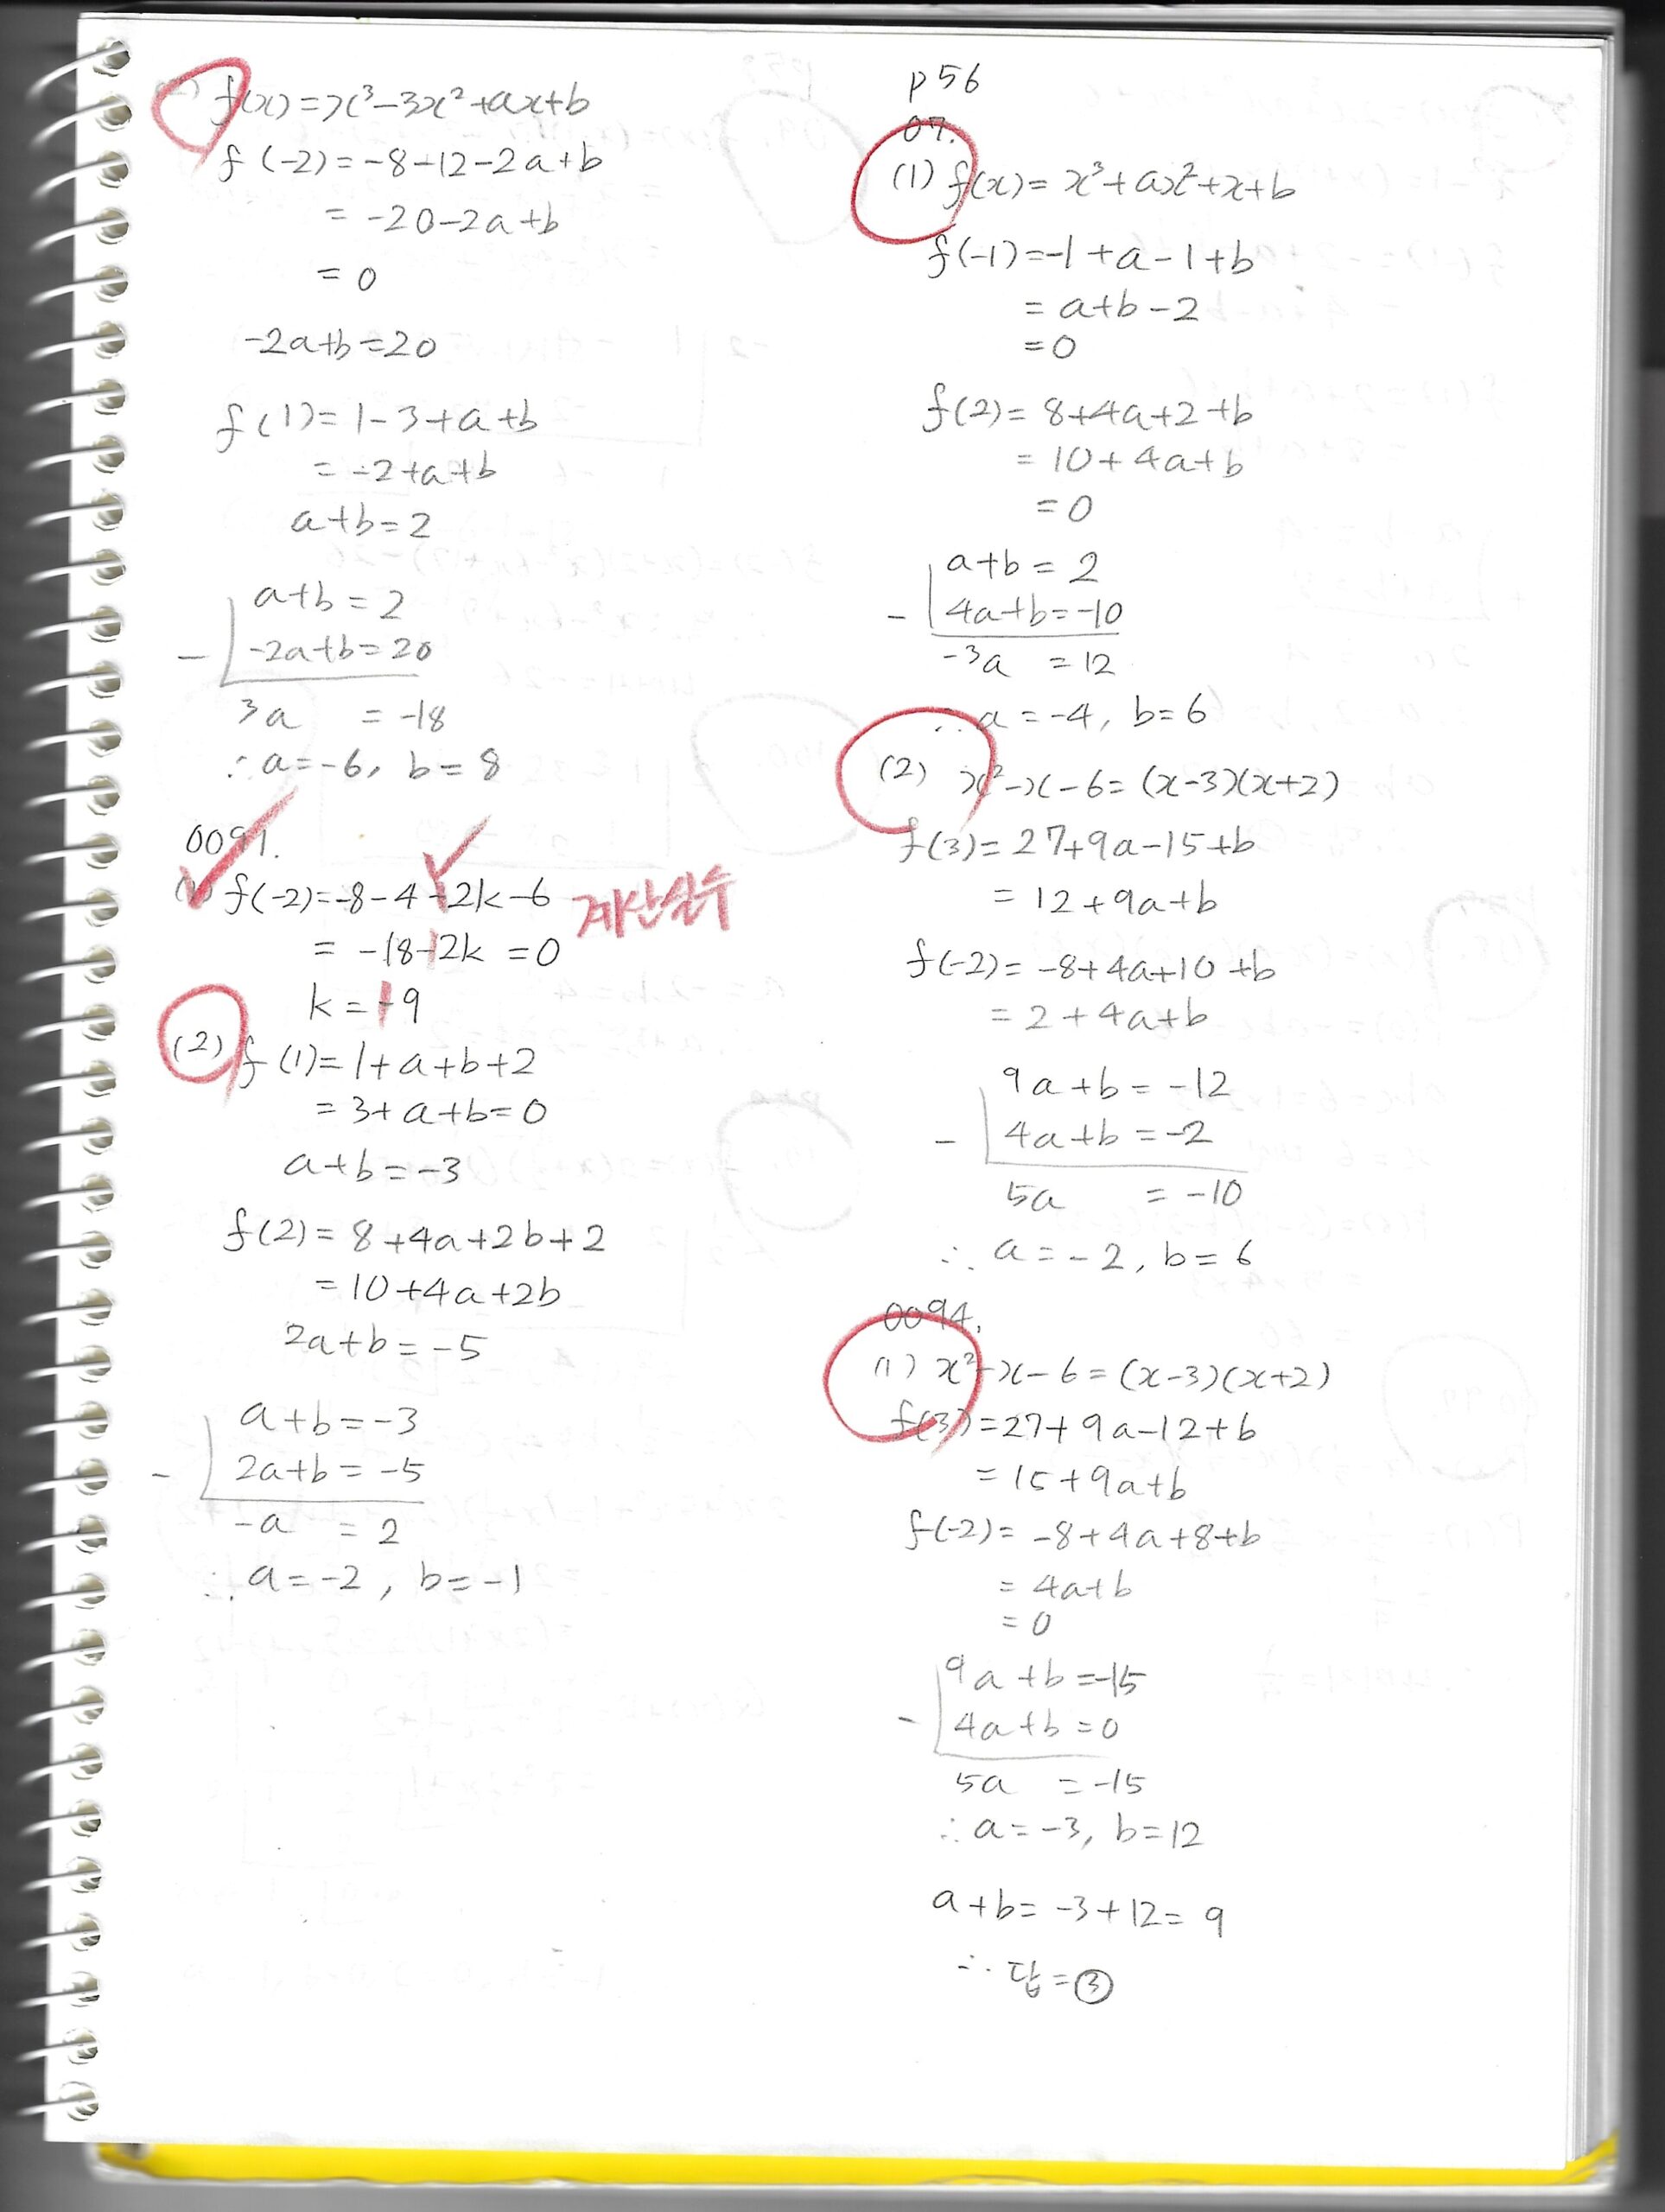 f(x)=x³-3x²+ax+b
f(-2)=-8-12-2a+b
=-20-2a+b
=0
-2a+b=20
f(1)=1-3+a+b
=-2+a+b
a+b=2
a+b=2
- -2a+b=20
3a =-18
∴a=-6, b=8
0091.
(1) f(-2)=-8-4+2k-6 계산실수
=-18+2k=0
k=+9
(2) f(1)=1+a+b+2
=3+a+b=0
a+b=-3
f(2)=8+4a+2b+2
=10+4a+2b
2a+b=-5
a+b=-3
- 2a+b=-5
-a =2
∴a=-2, b=-1
p56
07.
(1) f(x)=x³+ax²+x+b
f(-1)=-1+a-1+b
=a+b-2
=0
f(2)=8+4a+2+b
=10+4a+b
=0
a+b=2
- 4a+b=-10
-3a =12
∴a=-4, b=6
(2) x²-x-6=(x-3)(x+2)
f(3)=27+9a-15+b
=12+9a+b
f(-2)=-8+4a+10+b
=2+4a+b
9a+b=-12
- 4a+b=-2
5a =-10
∴a=-2, b=6
0094.
(1) x²-x-6=(x-3)(x+2)
f(3)=27+9a-12+b
=15+9a+b
f(-2)=-8+4a+8+b
=4a+b
=0
9a+b=-15
- 4a+b=0
5a =-15
∴a=-3, b=12
a+b=-3+12=9
∴답=③